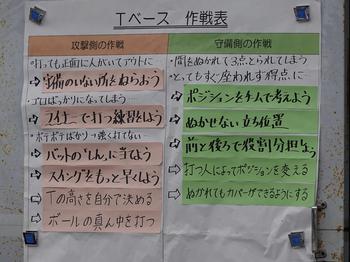 Tベース 作戦表
攻撃側の作戦
・打っても正面に人がいてアウトに
⇨守備のいない所をねらおう
・ゴロばっかりになってしまう…
⇨フライナーで打つ練習をしよう
・ボテボテばかり→強くれてない…
⇨バットの「しん」に当てよう
⇨スイングをもっと早くしよう
⇨Tの高さを自分で決める
⇨ボールの真ん中を打つ
守備側の作戦
・間をぬかれて3点とられてしまう
・とってもすぐ座われず得点に
⇨ポジションをチームで考えよう
⇨ぬかせない立ち位置
⇨前と後ろで役割分担しよう
⇨打つ人によってポジションを変える
⇨ぬかれてもカバーができるようにする